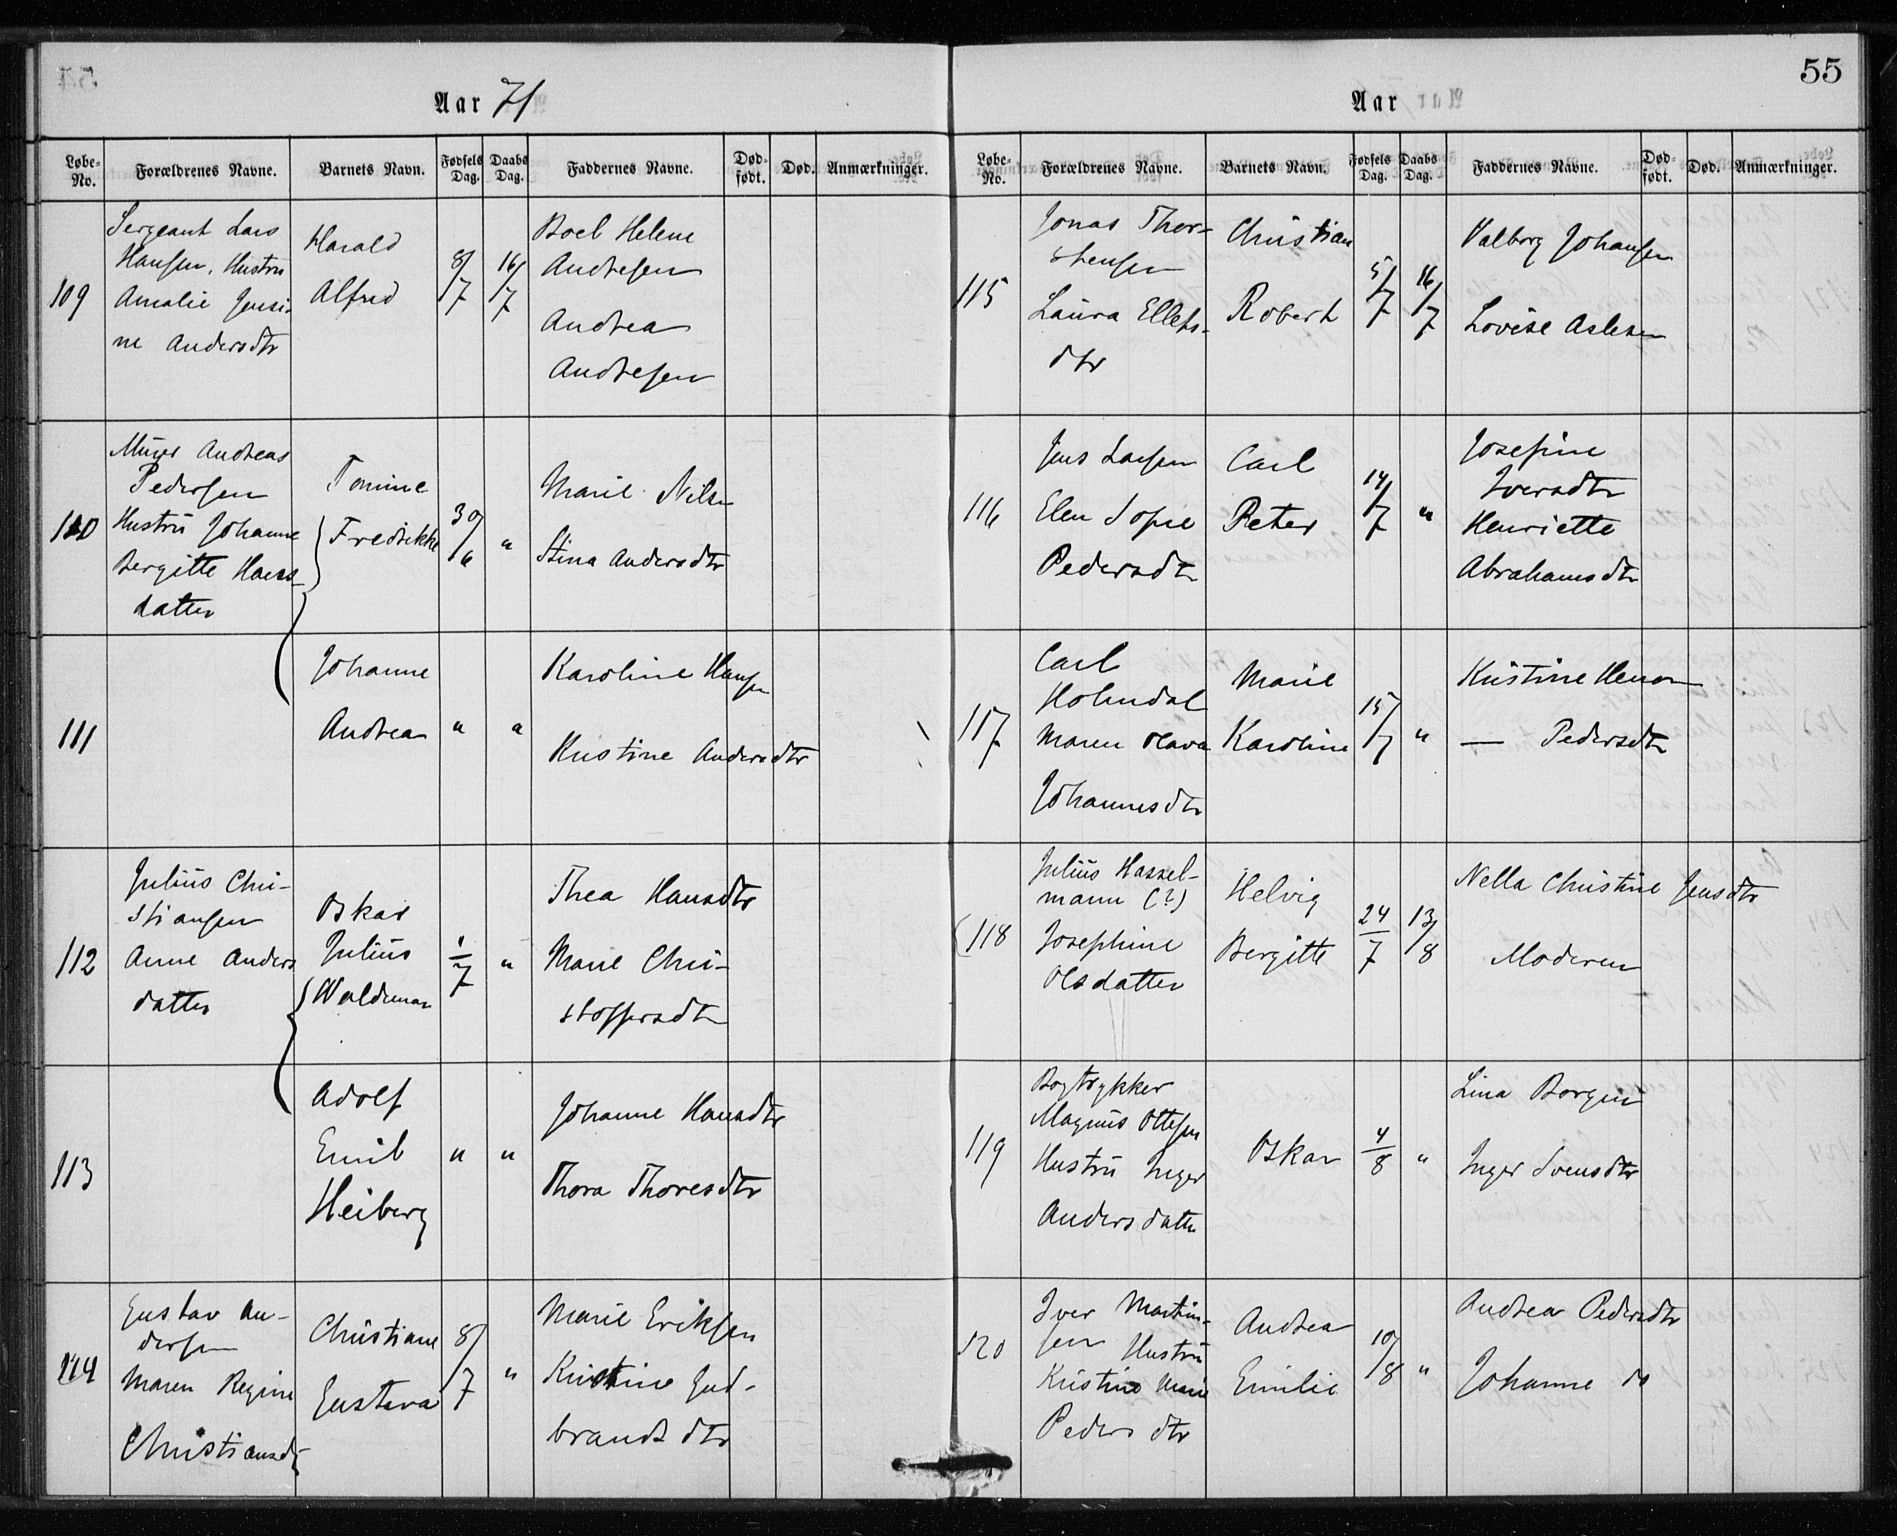 55
Aar 71
Aar
Løbe-No. Forældrenes Navne. Barnets Navn. Fødsels Dag. Daabs Dag. Faddernes Navne. Død-født. Død. Anmærkninger.
109
Sergeant Lars
Hansen, Hustru
Amalie Jensi-
ne Andersdtr
Harald
Alfred
8/7
16/7
Boel Helene
Andresen
Andrea
Andresen
110
Murer Andreas
Pedersen
Hustru Johanne
Bergitte Hans-
datter
Tomine
Fredrikke
30/6
"
Marie Nilsen
Stina Andersdtr
111
Johanne
Andrea
"
"
Karoline Hansen
Kristine Andersdtr
112
Julius Chri-
stiansen
Anne Anders
datter
Oskar
Julius
Waldemar
1/7
"
Thea Hansdtr
Marie Chri-
stoffersdtr
113
Adolf
Emil
Heiberg
"
"
Johanne Hansdtr
Thora Thoresdtr
114
Gustav An-
dersen
Maren Regine
Christiansdtr
Christiane
Gustava
8/7
"
Marie Eriksen
Kristine Gud-
brandsdtr
Løbe-No. Forældrenes Navne. Barnets Navn. Fødsels Dag. Daabs Dag. Faddernes Navne. Død-født. Død. Anmærkninger.
115
Jonas Thor-
stensen
Laura Ellefs-
dtr
Christian
Robert
5/7
16/7
Valborg Johansen
Lovise Aslesen
116
Jens Larsen
Elen Sofie
Pedersdtr
Carl
Peter
14/7
"
Josefine
Iversdtr
Henriette
Abrahamsdtr
117
Carl
Holmdal
Maren Olava
Johannesdtr
Marie
Karoline
15/7
"
Kristine
— Pedersdtr
118
Julius Hassel-
mann (?)
Josephine
Olsdatter
Helvig
Bergitte
24/7
13/8
Nella Christine Jensdtr
Moderen
119
Bogtrykker
Magnus Ottesen
Hustru Inger
Andersdatter
Oskar
4/8
"
Lina Borgen
Inger Svensdtr
120
Iver Martin-
sen Hustru
Kristine Marie
Pedersdtr
Andrea
Emilie
10/8
"
Andrea Pedersdtr
Johanne do